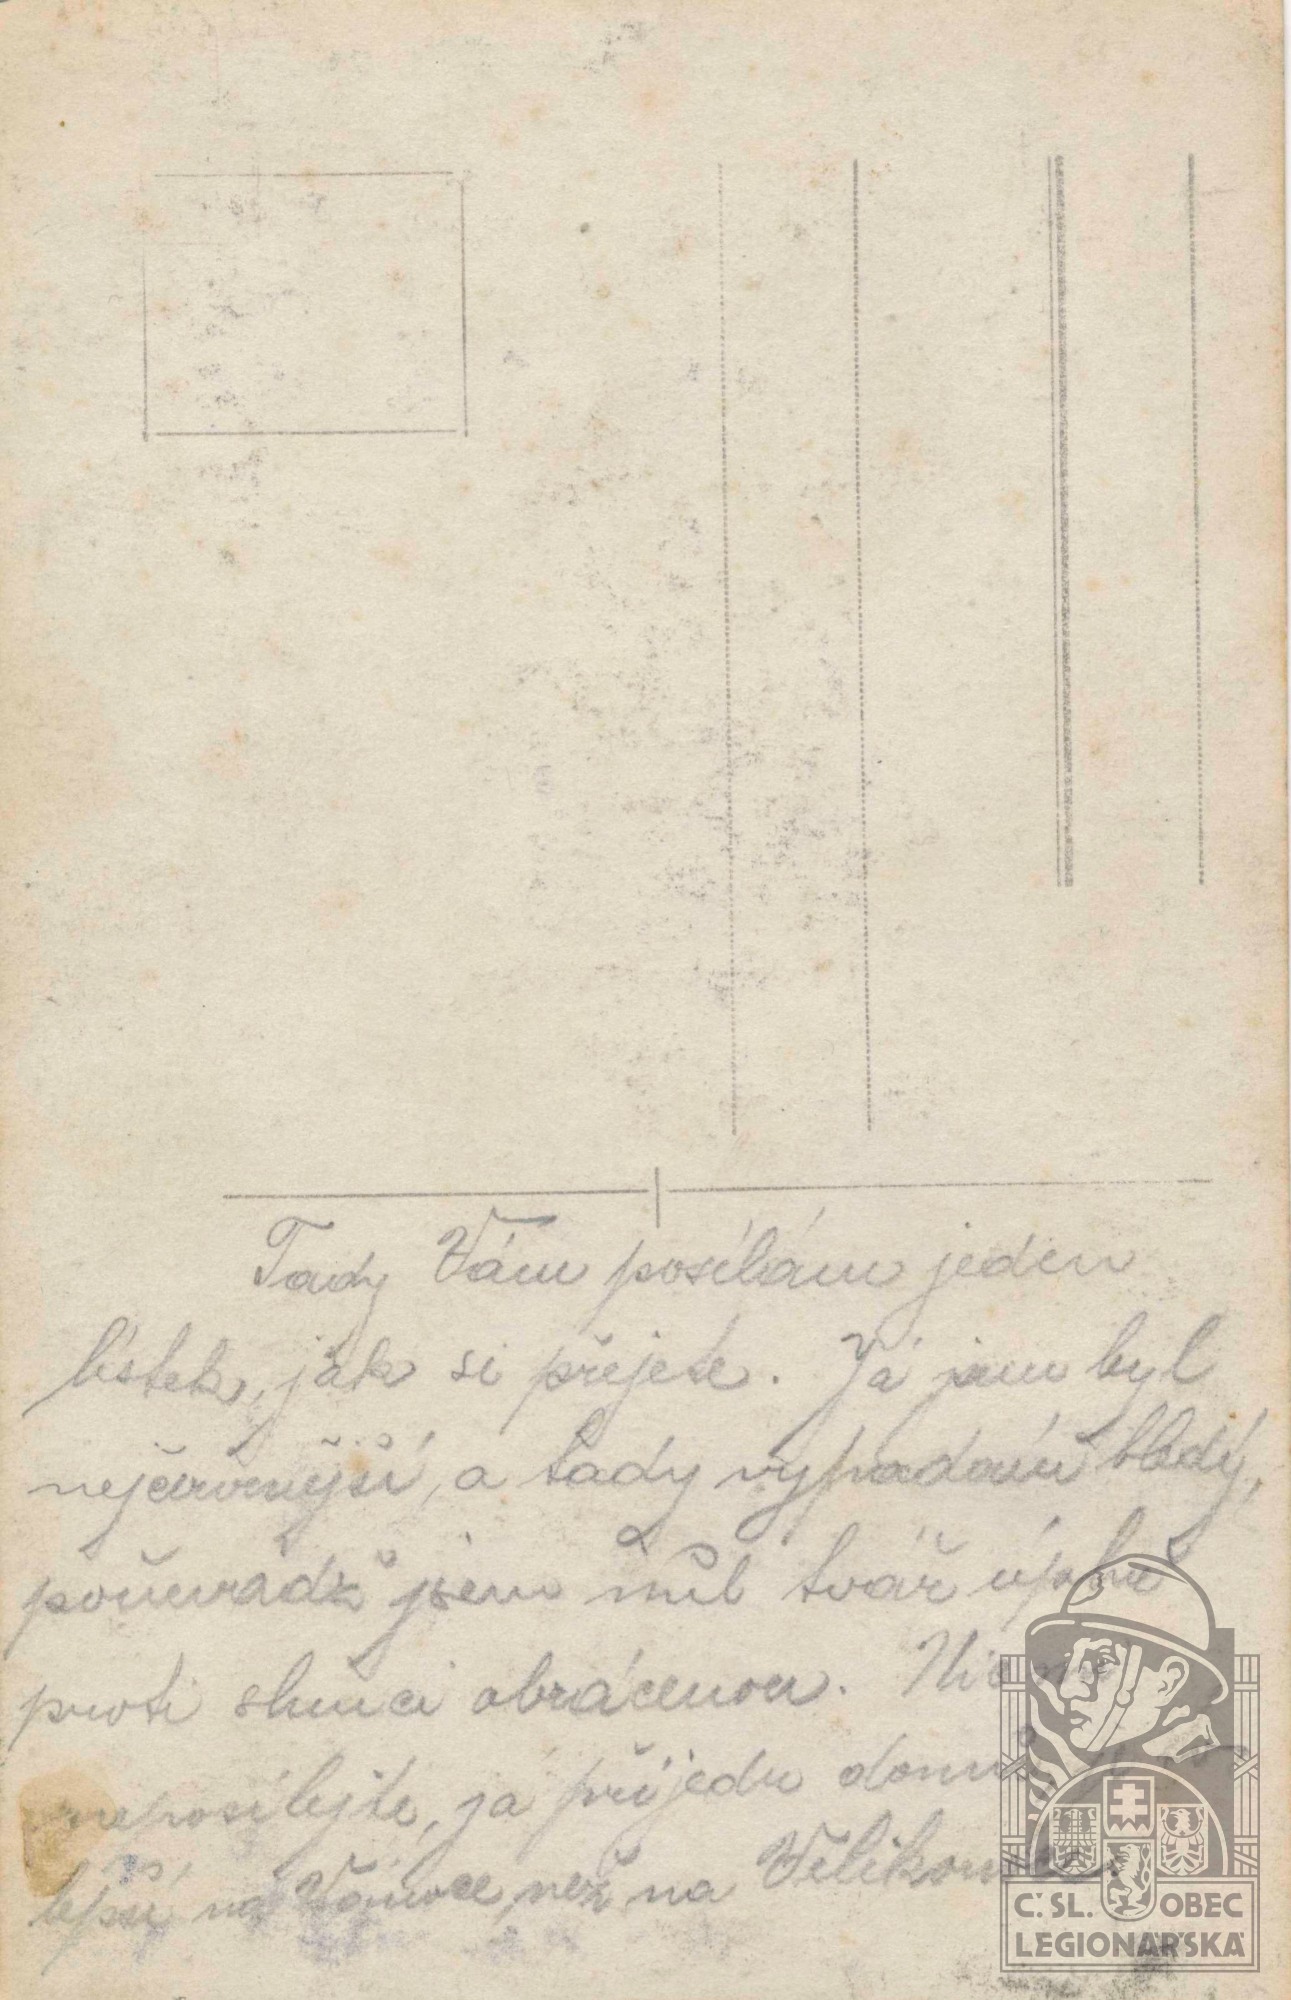 Tady Vám posílám jeden
lístek, jak si přejete. Já jsem byl
nejčervenější, a tady vypadám bledý,
poněvadž jsem měl tvář úplně
proti slunci obrácenou. Nic mě
neposílejte, já přijedu domů, je to
lepší na Vánoce, než na Velikonoce.
Č.SL. OBEC
LEGIONÁŘSKÁ